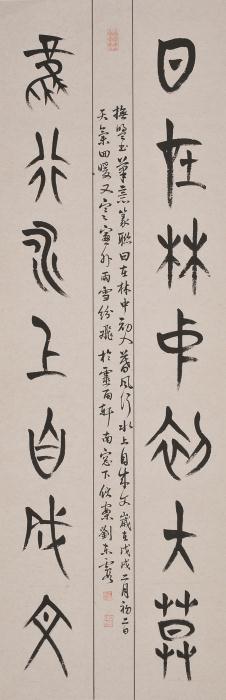 日在林中初入莫
筆意篆聯日在林中初入暮風行水上自成文歲在戊戌二月初二日
天氣回暖又寒窗外雨雪紛飛於靈雨軒南窗下劉東霞
風行水上自成文